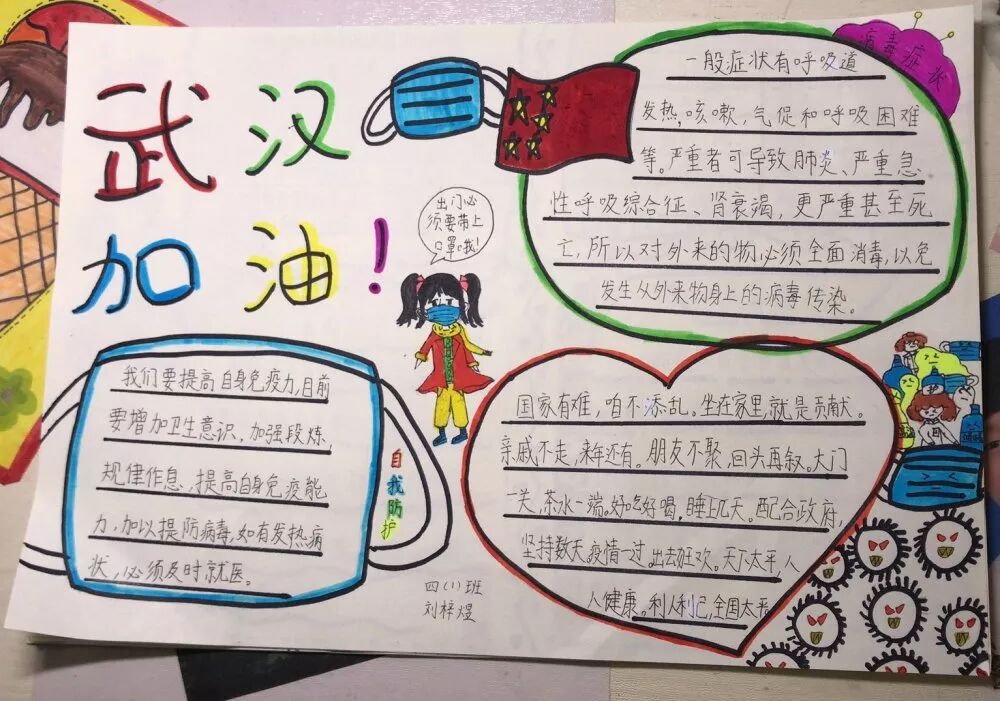 武汉
加油!
出门必
须要带上
口罩哦!
病毒症状
一般症状有呼吸道
发热,咳嗽,气促和呼吸困难
等。严重者可导致肺炎、严重急
性呼吸综合征、肾衰竭,更严重甚至死
亡,所以对外来的物必须全面消毒,以免
发生从外来物身上的病毒传染。
我们要提高自身免疫力,目前
要增加卫生意识,加强段炼,
规律作息,提高自身免疫能
力,加以提防病毒,如有发热病
状,必须及时就医。
自我防护
国家有难,咱不添乱。坐在家里,就是贡献。
亲戚不走,来年还有。朋友不聚,回头再叙。大门
一关,茶水一端。好吃好喝,睡上几天。配合政府,
坚持数天。疫情一过,出去狂欢。天下太平,人
人健康。利人利己,全国太平
四(1)班
刘梓煜